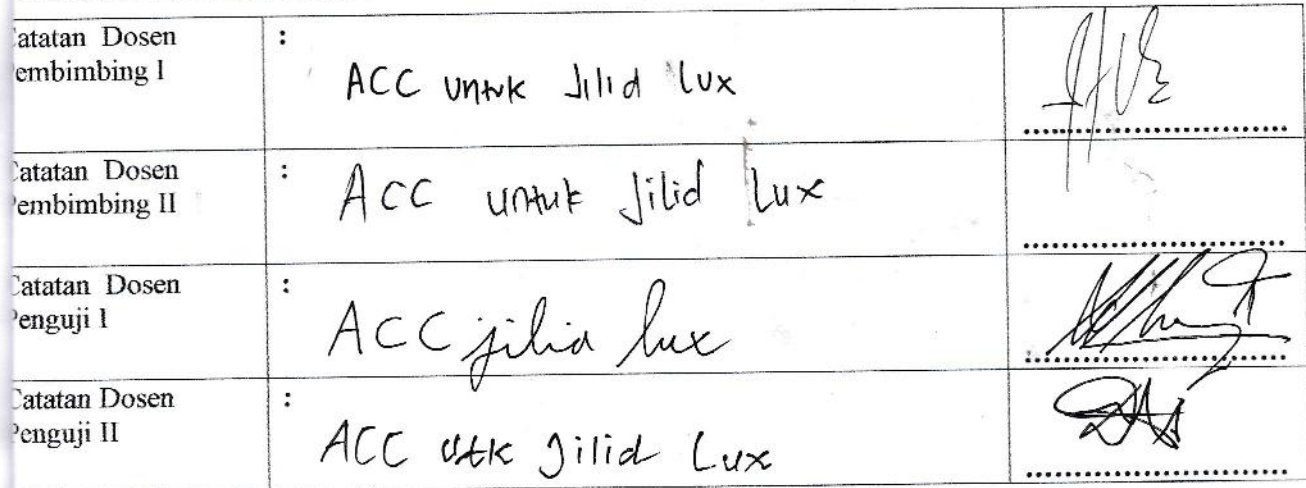 atatan Dosen :
embimbing I
ACC untuk Jilid lux
atatan Dosen :
embimbing II
ACC untuk Jilid Lux
Catatan Dosen :
Penguji I
ACC jilid lux
Catatan Dosen :
Penguji II
ACC utk Jilid Lux